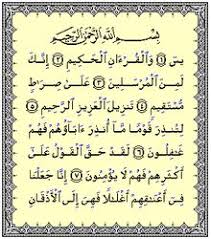 بِسْمِ ٱللَّهِ ٱلرَّحْمَٰنِ ٱلرَّحِيمِ
يسٓ ١ وَٱلْقُرْءَانِ ٱلْحَكِيمِ ٢ إِنَّكَ
لَمِنَ ٱلْمُرْسَلِينَ ٣ عَلَىٰ صِرَٰطٍ
مُّسْتَقِيمٍ ٤ تَنزِيلَ ٱلْعَزِيزِ ٱلرَّحِيمِ ٥
لِتُنذِرَ قَوْمًا مَّآ أُنذِرَ ءَابَآؤُهُمْ فَهُمْ
غَٰفِلُونَ ٦ لَقَدْ حَقَّ ٱلْقَوْلُ عَلَىٰٓ
أَكْثَرِهِمْ فَهُمْ لَا يُؤْمِنُونَ ٧ إِنَّا جَعَلْنَا
فِىٓ أَعْنَٰقِهِمْ أَغْلَٰلًا فَهِىَ إِلَى ٱلْأَذْقَانِ